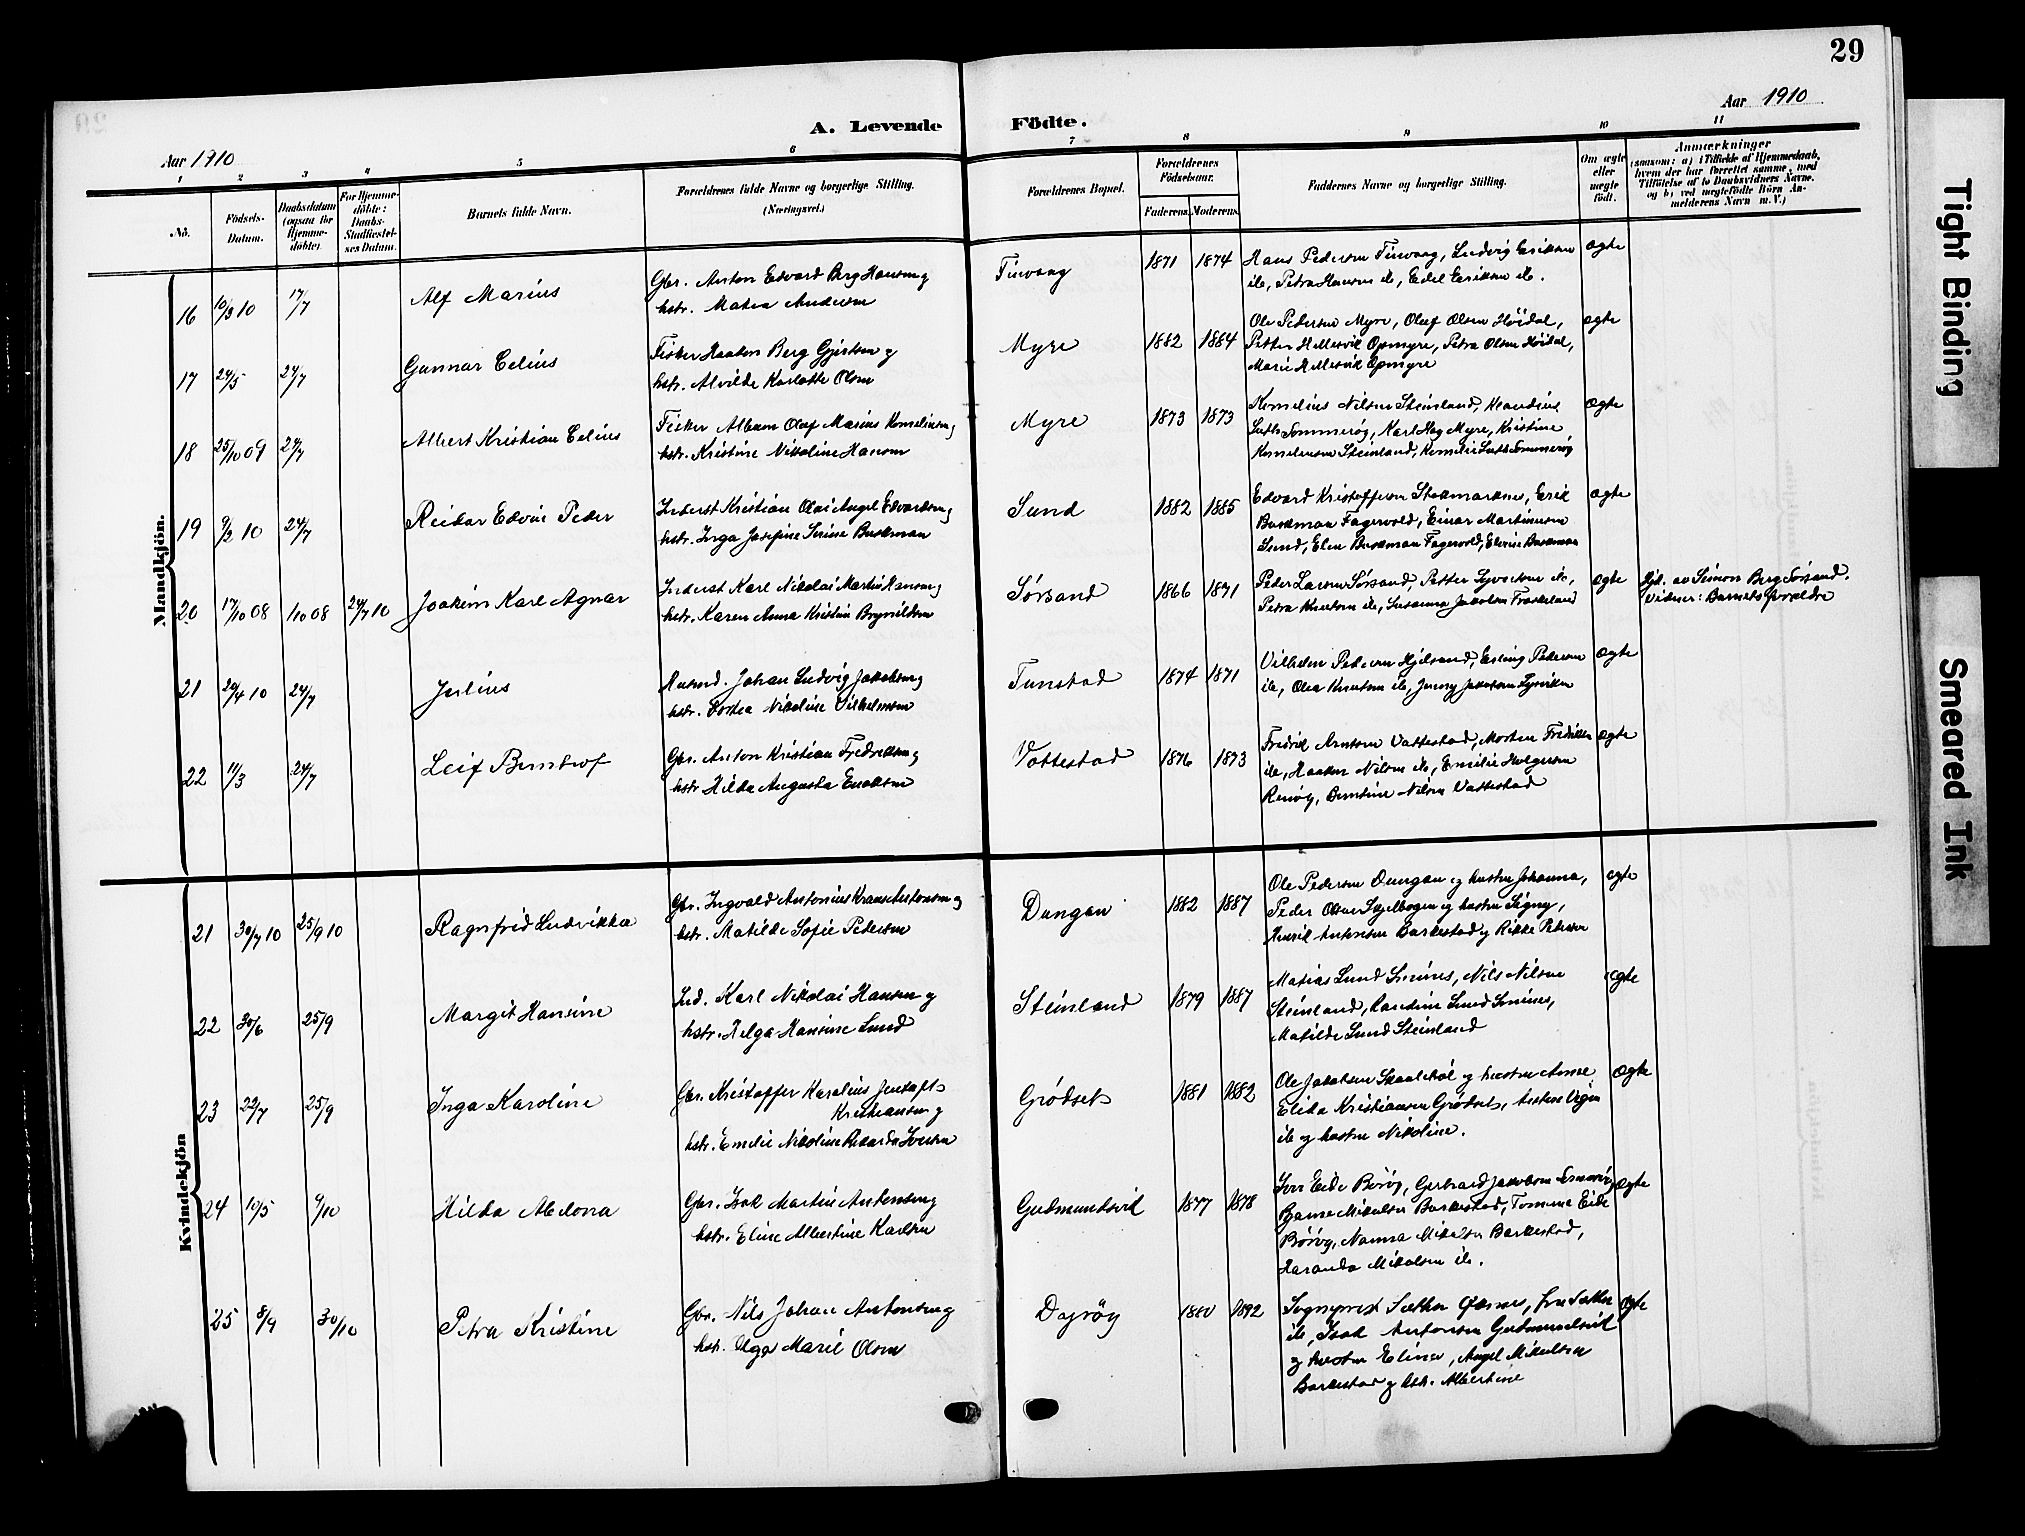 29
Aar 1910
A. Levende Födte.
Aar 1910
1 2 3 4 5 6 7 8 9 10 11
No.
Födsels-Datum.
Daabsdatum (ogsaa for Hjemmedöbte)
For Hjemmedöbte: Daabs-Stadfæstelses Datum.
Barnets fulde Navn.
Forældrenes fulde Navne og borgerlige Stilling.
(Næringsvei.)
Forældrenes Bopæl.
Forældrenes Födselsaar.
Faderens. Moderens.
Faddernes Navne og borgerlige Stilling.
Om ægte eller uægte födt.
Anmærkninger
(saasom: a) i Tilfælde af Hjemmedaab, hvem der har forrettet samme, med Tilföielse af to Daabsvidners Navne. og b) ved uægtefödte Börn Anmelderens Navn m. V.)
Mandkjön.
16 10/3 10 17/7 Alf Marius
Gbr. Anton Edvard Berg Hansen og
hstr. Matea Andersen
Finvaag 1871 1874
Hans Pedersen Finvaag, Ludvig Eriksen
ib, Petra Hansen ib, Edel Eriksen ib.
ægte
17 24/5 24/7 Gunnar Celius
Fisker Haakon Berg Gjertsen og
hstr. Alvilde Karlotte Olsen
Myre 1882 1884
Ole Pedersen Myre, Oluf Olsen Höidal,
Petter Hellesvik Opmyre, Petra Olsen Höidal,
Marie Hellesvik Opmyre
ægte
18 25/10 09 24/7 Albert Kristian Celius
Fisker Album Olaf Marius Kornelius og
hstr. Kristine Nikoline Hansen
Myre 1873 1873
Kornelius Nilsen Steinland, Klaudius
Luth Sommeröy, Karl Hag Myre, Kristine
Korneliussen Steinland, Kornelie Luth Sommeröy
ægte
19 9/2 10 24/7 Reidar Edvin Peder
Inderst Kristian Olai Angel Edvardsen og
hstr. Inga Josefine Serine Buschman
Sund 1882 1885
Edvard Kristoffersen Stokmarknes, Erik
Buschman Fagervold, Einar Martinussen
Sund, Elen Buschman Fagervold, Elvine Buschman
ægte
20 17/10 08 1/10 08 24/7 10 Joakim Karl Agnar
Inderst Karl Nikolai Martin Hansen og
hstr. Karen Anna Kristine Brynildsen
Sörsand 1866 1871
Peder Larsen Sörsand, Petter Syversen ib,
Petra Knutsen ib, Susanna Jakobsen Froskeland
ægte
Hjd. av Simon Berg Sörsand.
Vidner: Barnets forældre
21 20/4 10 24/7 Julius
Husmd. Johan Ludvig Jakobsen og
hstr. Dortea Nikoline Vilhelmsen
Tunstad 1874 1871
Vilhelm Pedersen Hjelsand, Erling Pedersen
ib, Olea Knutsen ib, Jenny Jakobsen
ægte
22 11/3 24/7 Leif Berntrof
Gbr. Anton Kristian Fredriksen og
hstr. Hilda Augusta Enoksen
Vottestad 1876 1873
Fredrik Arntsen Vottestad, Morten Fredriksen
ib, Haakon Nilsen ib, Emilie Holgersen
Rinöy, Berntine Nilsen Vattestad
ægte
Kvindekjön
21 30/7 10 25/9 10 Ragnfrid Ludvikka
Gbr. Ingvald Antonius Krans Antonsen og
hstr. Matilde Sofie Pedersen
Dungan 1882 1887
Ole Pedersen Dungan og hustru Johanna,
Peder Olsen Skjelbogen og hustru Signy,
Henrik Antonsen Barkestad og Rikke Petersen
ægte
22 30/6 25/9 Margit Hansine
Ind. Karl Nikolai Hansen og
hstr. Helga Hansine Lund
Steinland 1879 1887
Matias Lund Smines, Nils Nilsen
Steinland, Randine Lund Smines,
Matilde Lund Steinland
ægte
23 22/7 25/9 Inga Karoline
Gbr. Kristoffer Karolius Jentoft
Kristiansen og
hstr. Emelie Nikoline Rikarda Iversen
Grödset 1881 1882
Ole Jakobsen Skaalebol og hustru Anna
Elida Kristiansen Grödset, Anton Vigen
ib og hustru Nikoline.
ægte
24 10/5 9/10 Hilda Aledona
Gbr. Isak Martin Antonsen og
hstr. Eline Albertine Karlsen
Gudmundsvik 1877 1878
Iver Eide Börög, Gerhard Jakobsen
Bjarne Mikalsen Barkestad, Tomine Eide
Böröy, Nanna Mikalsen Barkestad,
Haranda Mikalsen ib.
ægte
25 8/9 30/10 Petra Kristine
Gbr. Nils Johan Antonsen og
hstr. Olga Marie Olsen
Dyröy 1880 1892
Sogneprest Sæther Öksnes, fru Sæther
ib, Isak Antonsen Gudmundsvik
og hustru Elina, Angel Mikalsen
Barkestad og hstr. Albertine
ægte
Tight Binding
Smeared Ink